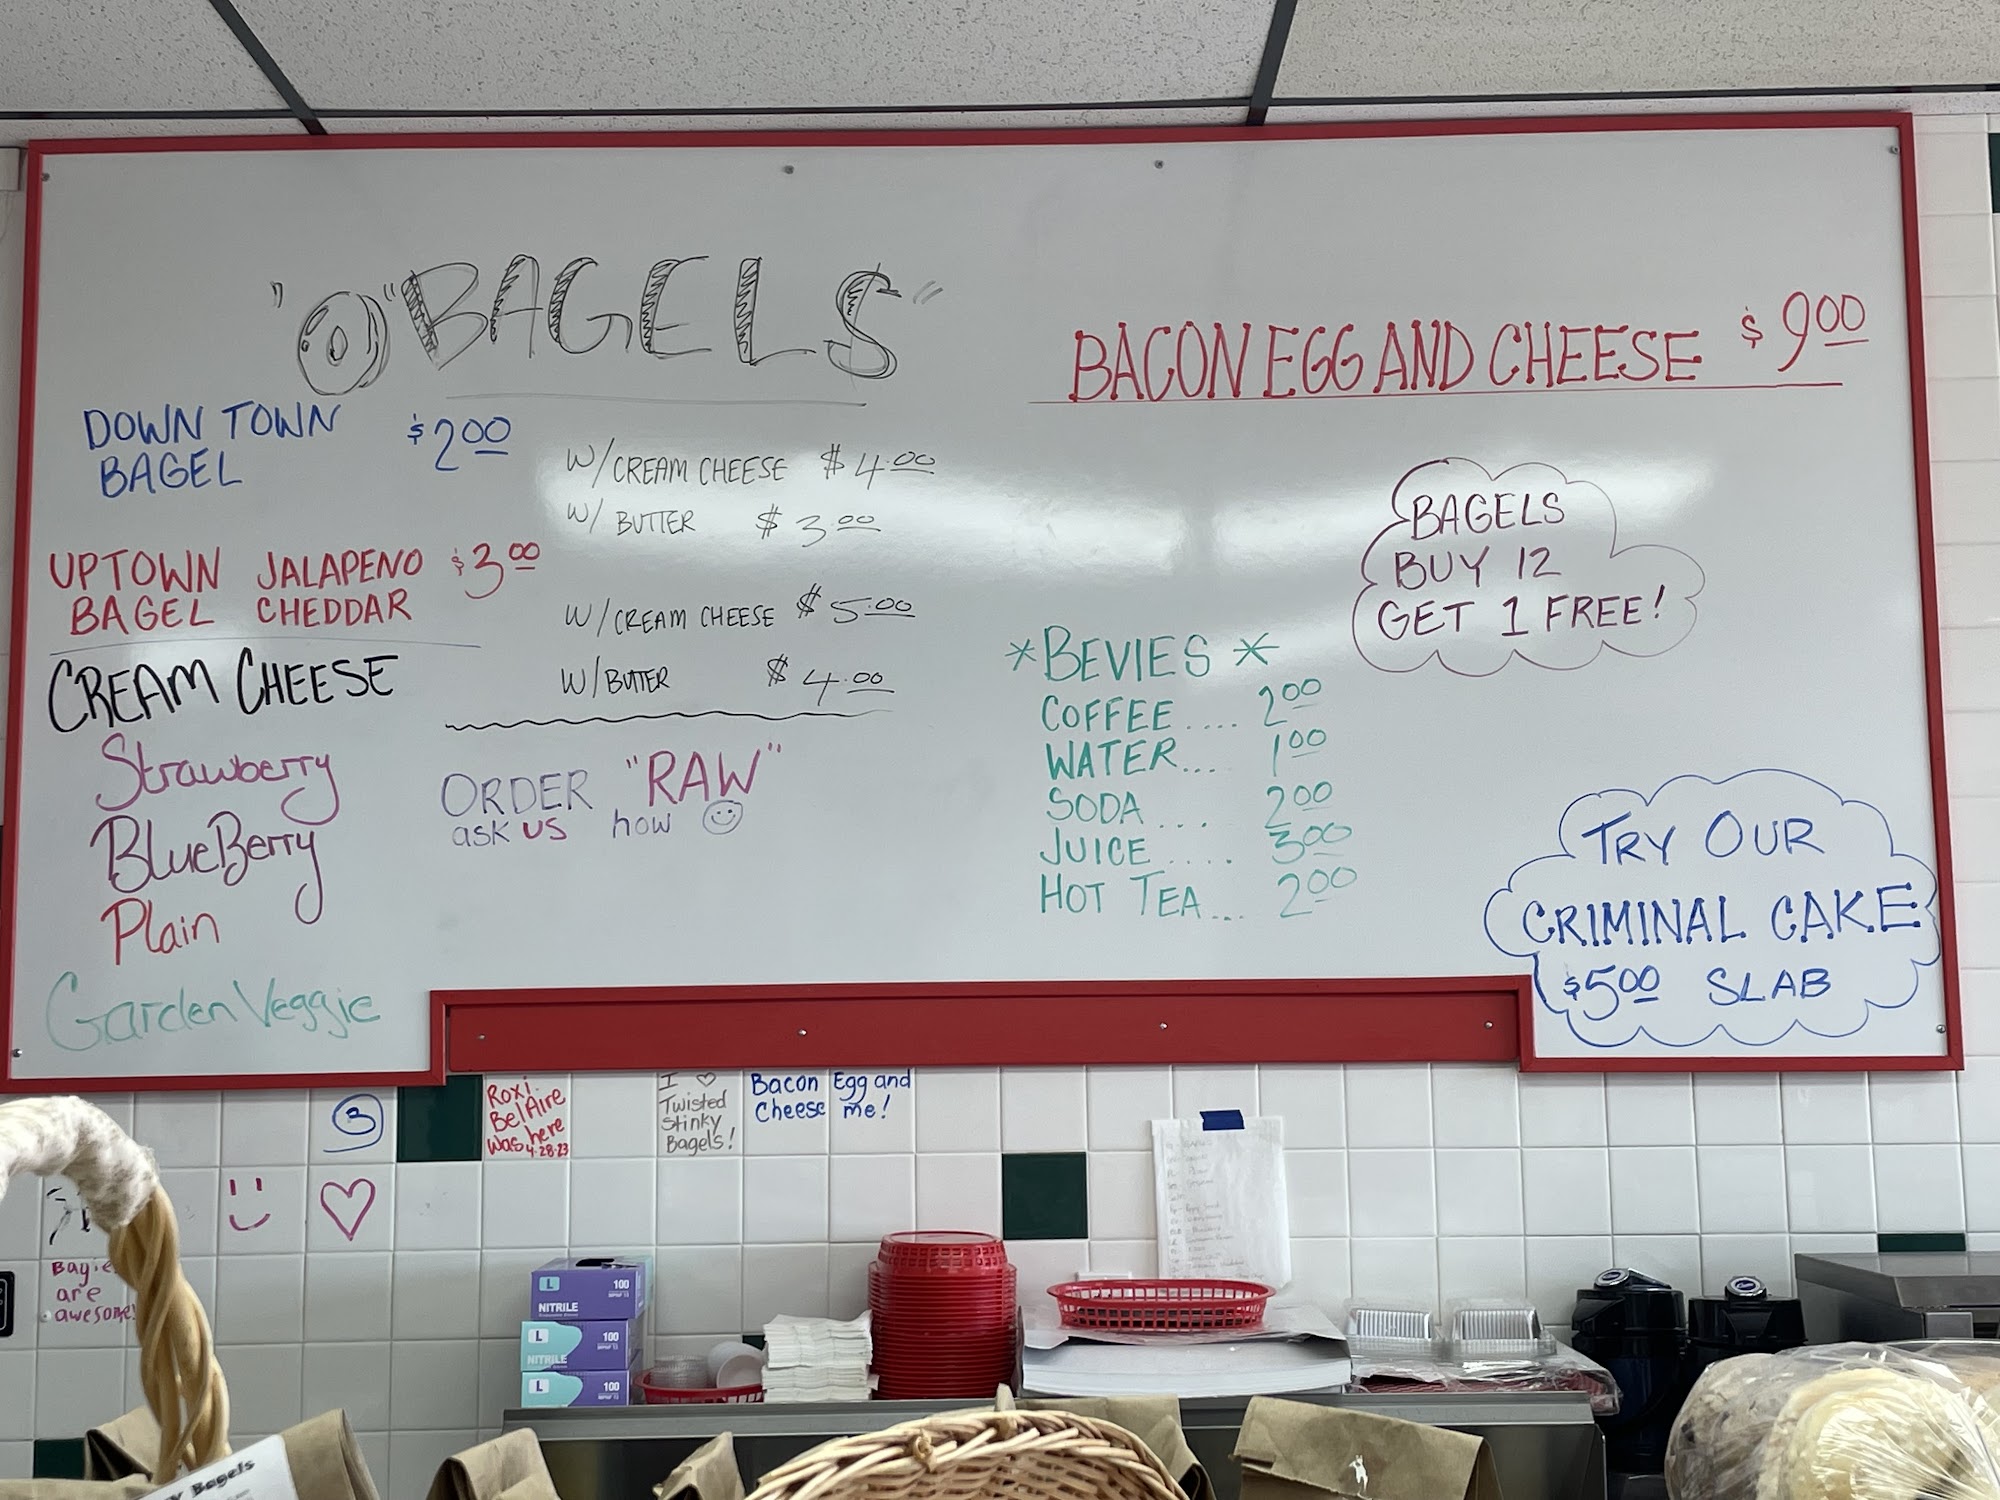 "BAGELS"
DOWN TOWN $2.00
BAGEL
W/CREAM CHEESE $4.00
W/ BUTTER $3.00
UPTOWN JALAPENO $3.00
BAGEL CHEDDAR
W/CREAM CHEESE $5.00
W/BUTTER $4.00
CREAM CHEESE
Strawberry
BlueBerry
Plain
Garden Veggie
ORDER "RAW"
ask us how
BACON EGG AND CHEESE $9.00
BAGELS
BUY 12
GET 1 FREE!
*BEVIES*
COFFEE.... 2.00
WATER.... 1.00
SODA.... 2.00
JUICE..... 3.00
HOT TEA.... 2.00
TRY OUR
CRIMINAL CAKE
$5.00 SLAB
3
Roxi
BelAire
was here
4.28.23
I ♡
Twisted
Stinky
Bagels!
Bacon Egg and
Cheese me!
are
awesome!
L 100
NITRILE
L 100
NITRILE
L 100
Bagels